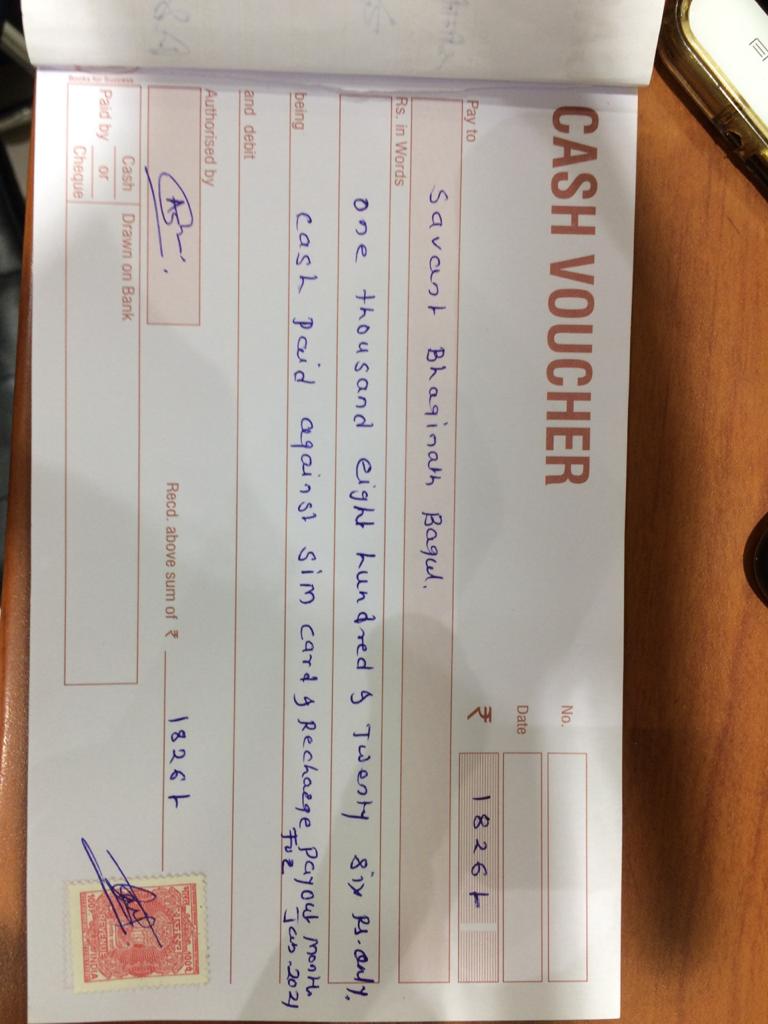 CASH VOUCHER
No.
Date
Pay to
₹ 1826/-
Savant Bhaginath Bagul.
Rs. in Words
one thousand eight hundred & Twenty six Rs. only.
being
cash paid against sim card & Recharge payout month
For Jan-2021
and debit
Authorised by
Recd. above sum of ₹ 1826/-
Paid by Cash or Cheque
Drawn on Bank
INDIA